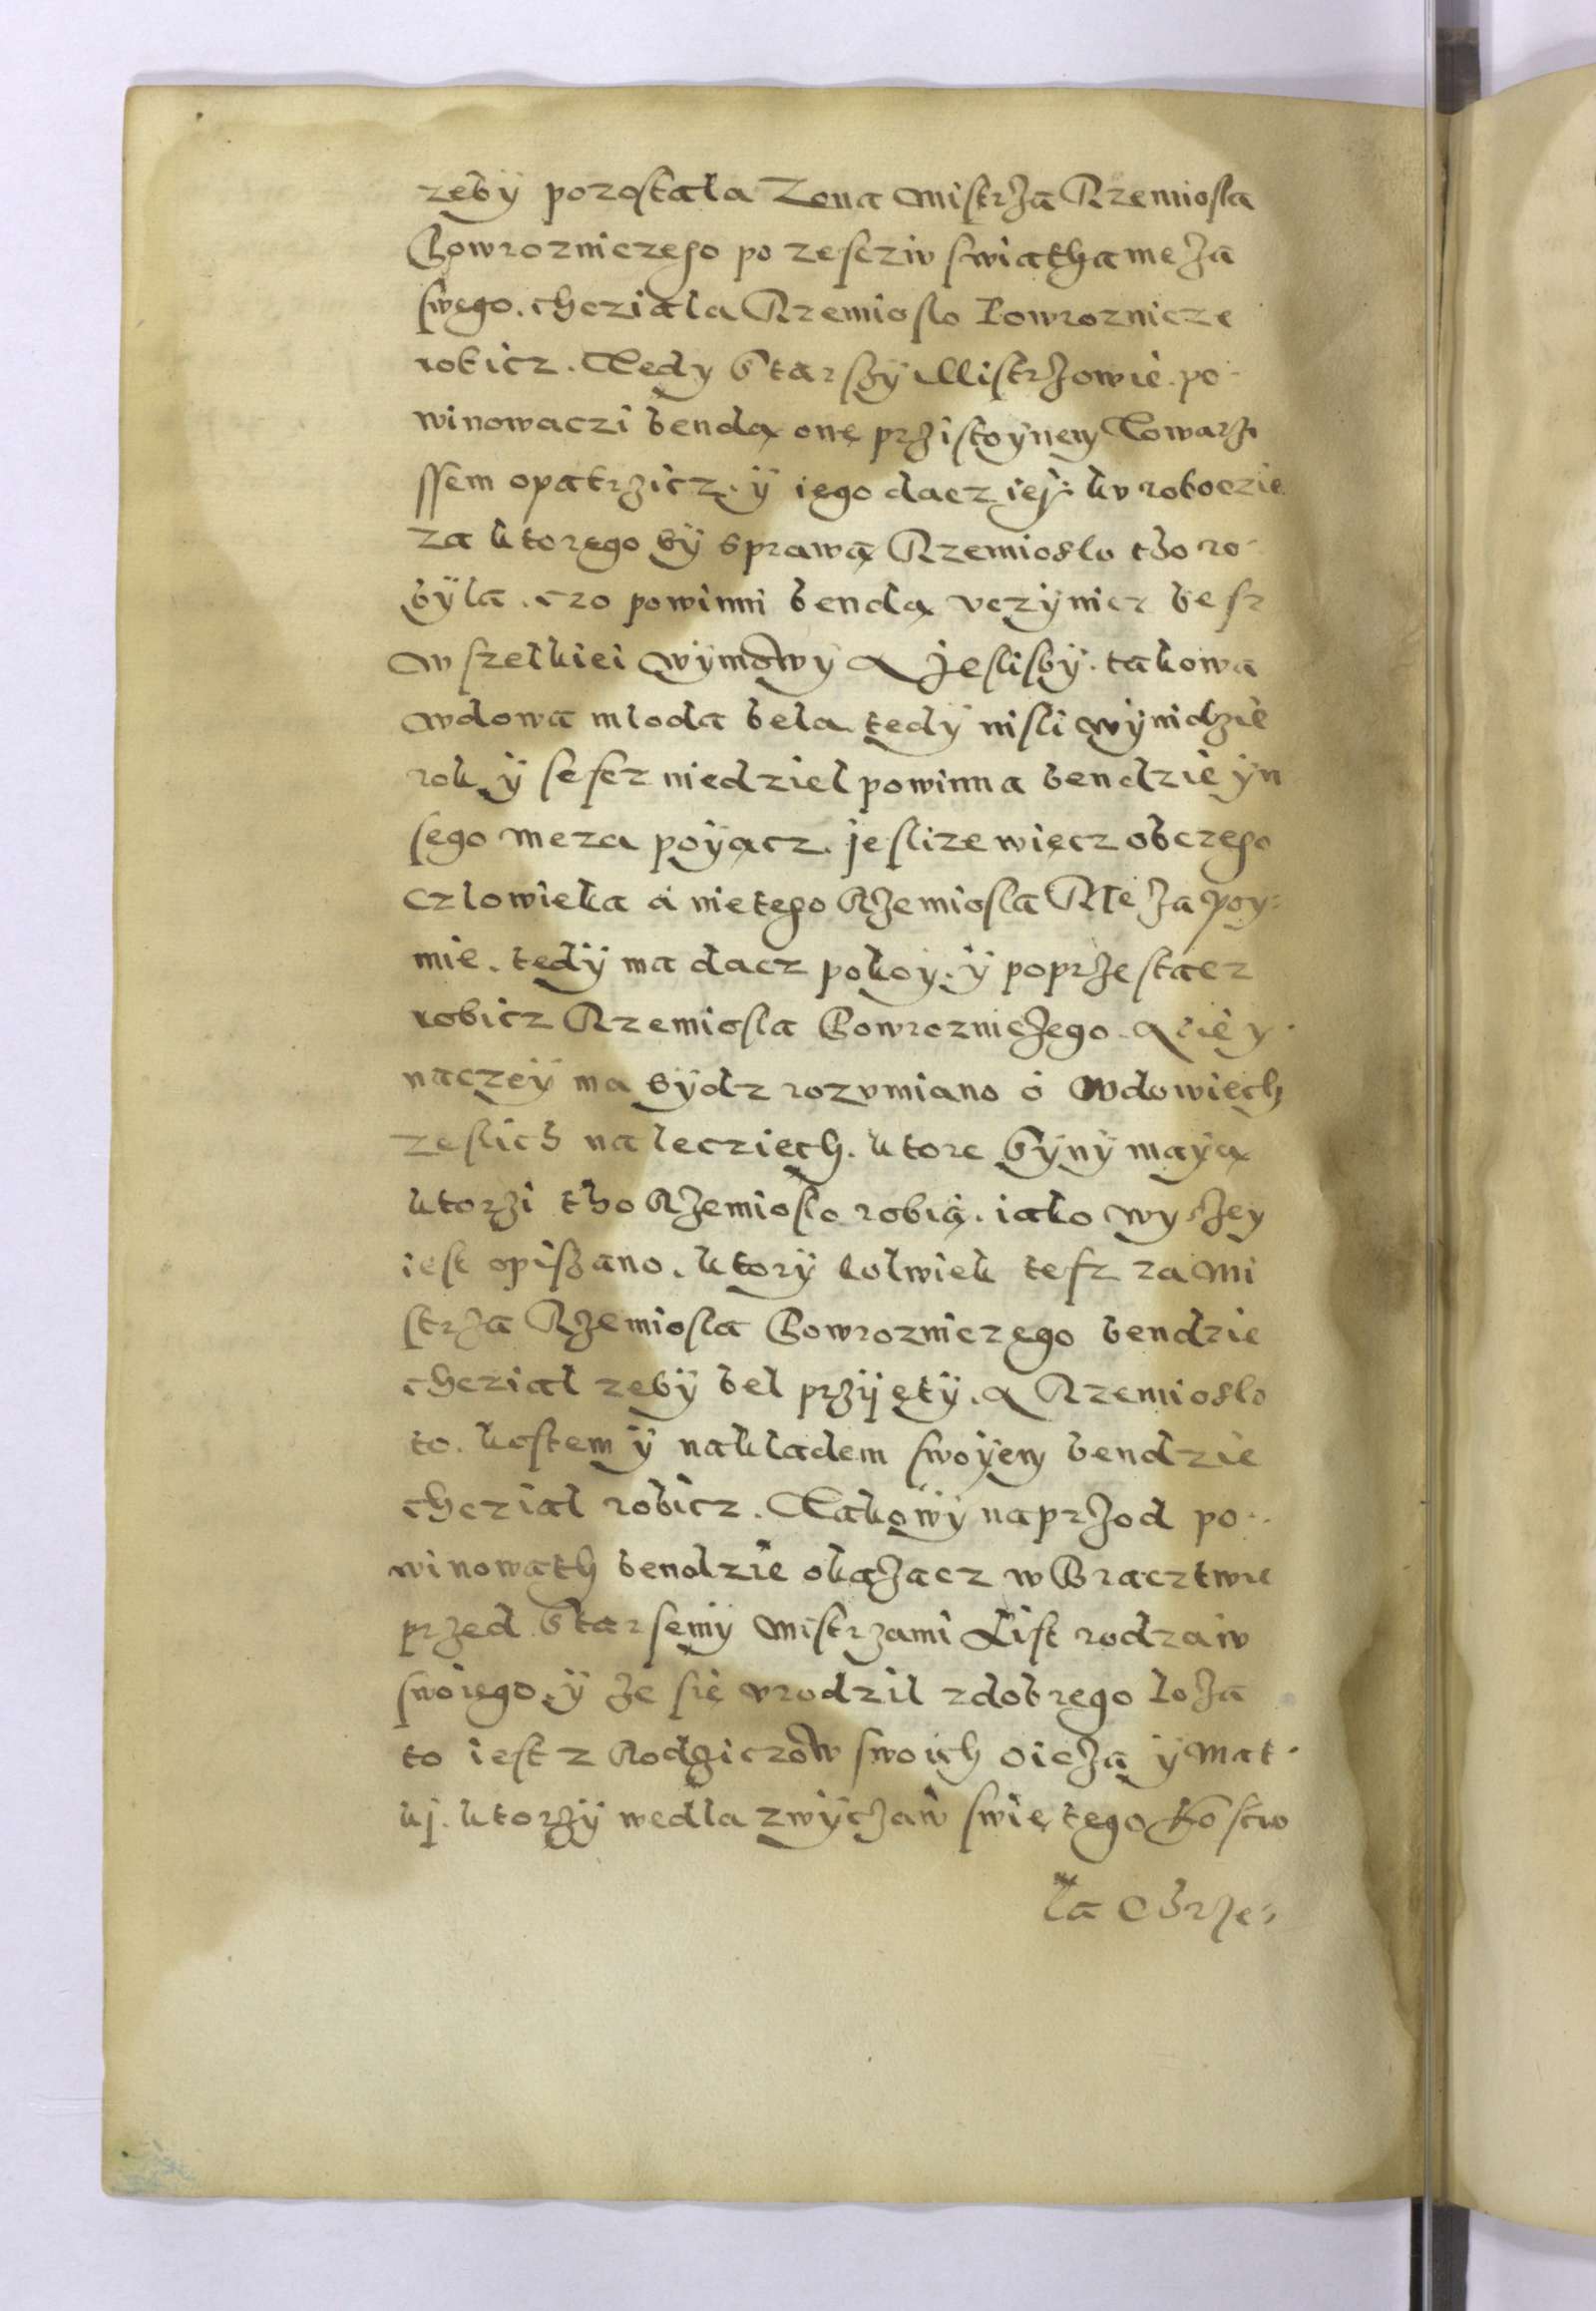 zeby pozostala Zona Mistrza Rzemiosla
Powrozniczego po zesciu swiatha meza
swego. chcziala Rzemioslo Powroznicze
robicz. Tedy Starszy Mistrzowie po-
winowaczi benda one przistoynem Towarzi
ssem opatrzicz. y iego dacz iej: ku roboczie
za ktorego by sprawą Rzemioslo tho ro-
byla. czo powinni bendą vczynicz besz
wszelkiei wymowy A jeslisby. takowa
wdowa mloda bela tedy nisli wynidzie
rok y sescz niedziel powinna bendzie yn
sego meza poyącz. jeslize więcz obczego
czlowieka a nie tego Rzemiosla Meza poy-
mie. tedy ma dacz pokoy. y poprzestacz
robicz Rzemiosla Powrozniczego. A nie y-
naczey ma bydz rozumiano o wdowiech
zeslich na lecziech. ktore syny mayą
ktorzi tho Rzemioslo robią. iako wyszey
iest opiszano. ktory kolwiek tesz za Mi
strza Rzemiosla Powrozniczego bendzie
chczial zeby bel przyjęty. A Rzemioslo
to. kostem y nakladem swoyem bendzie
chczial robicz. Takowy naprzod po-
winowath bendzie okazacz w Bracztwie
przed Starsemy Mistrzami List rodzaiu
swoiego. y ze się vrodzil z dobrego loza
to iest z Rodziczow swoich oicza y mat-
kj. ktorzy wedla zwyczaiu swiętego koscio
la Chrze-